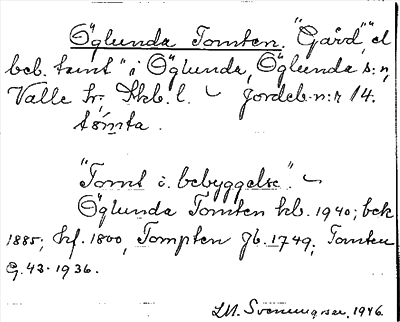 Öglunda Tomten. "Gård", el
beb. tomt" i Öglunda, Öglunda s:n,
Valle hr, Skb. l. Jordeb.n:r 14.
tómta.
"Tomt o. bebyggelse".
Öglunda Tomten hb. 1940; bek
1885; kf. 1800, Tompten Jb. 1749; Tomten
G.43. 1936.
J.M. Svenungsson, 1946.